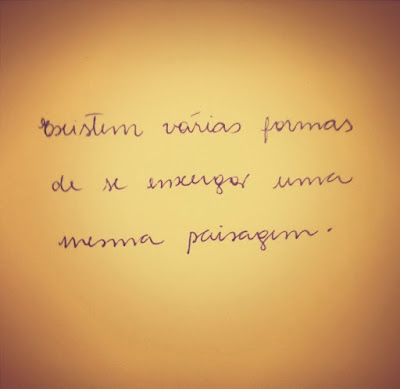 Existem várias formas
de se enxergar uma
mesma paisagem.